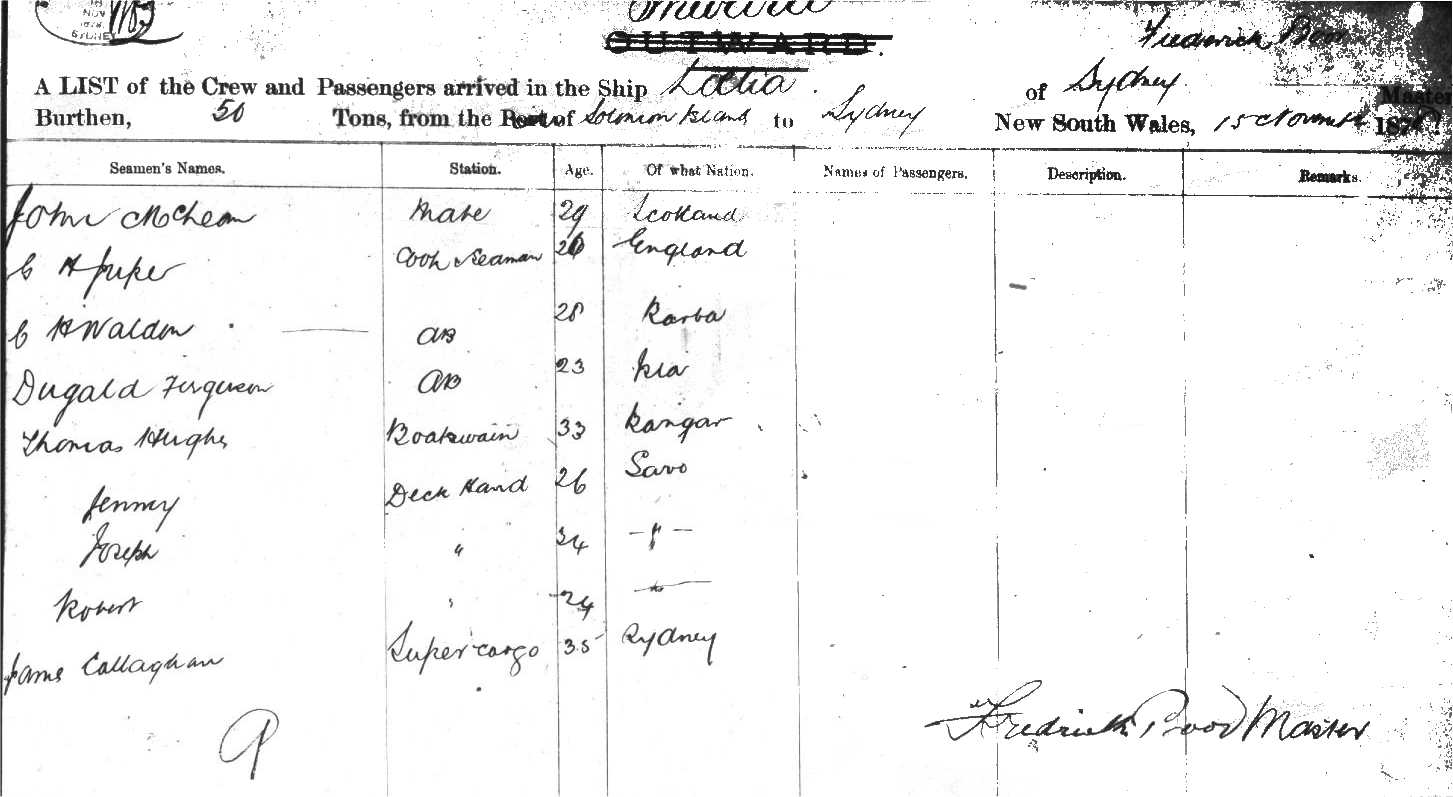 NOV
SYDNEY
OUTWARD.
Fredrick
A LIST of the Crew and Passengers arrived in the Ship Lætia of Sydney Master
Burthen, 50 Tons, from the Port of Solomon Island to Sydney New South Wales, 15 November 187
Seamen's Names. Station. Age. Of what Nation. Names of Passengers. Description. Remarks.
John McLean Mate 29 Scotland
C H Cook Seaman England
C H Waldon AB 28
Dugald Ferguson AB 23 Kia
Thomas Hughes Boatswain 33
Jenney Deck Hand 26 Savo
Joseph " 34 — " —
Robert " 24 — " —
James Callaghan Supercargo 35 Sydney
Fredrick Master